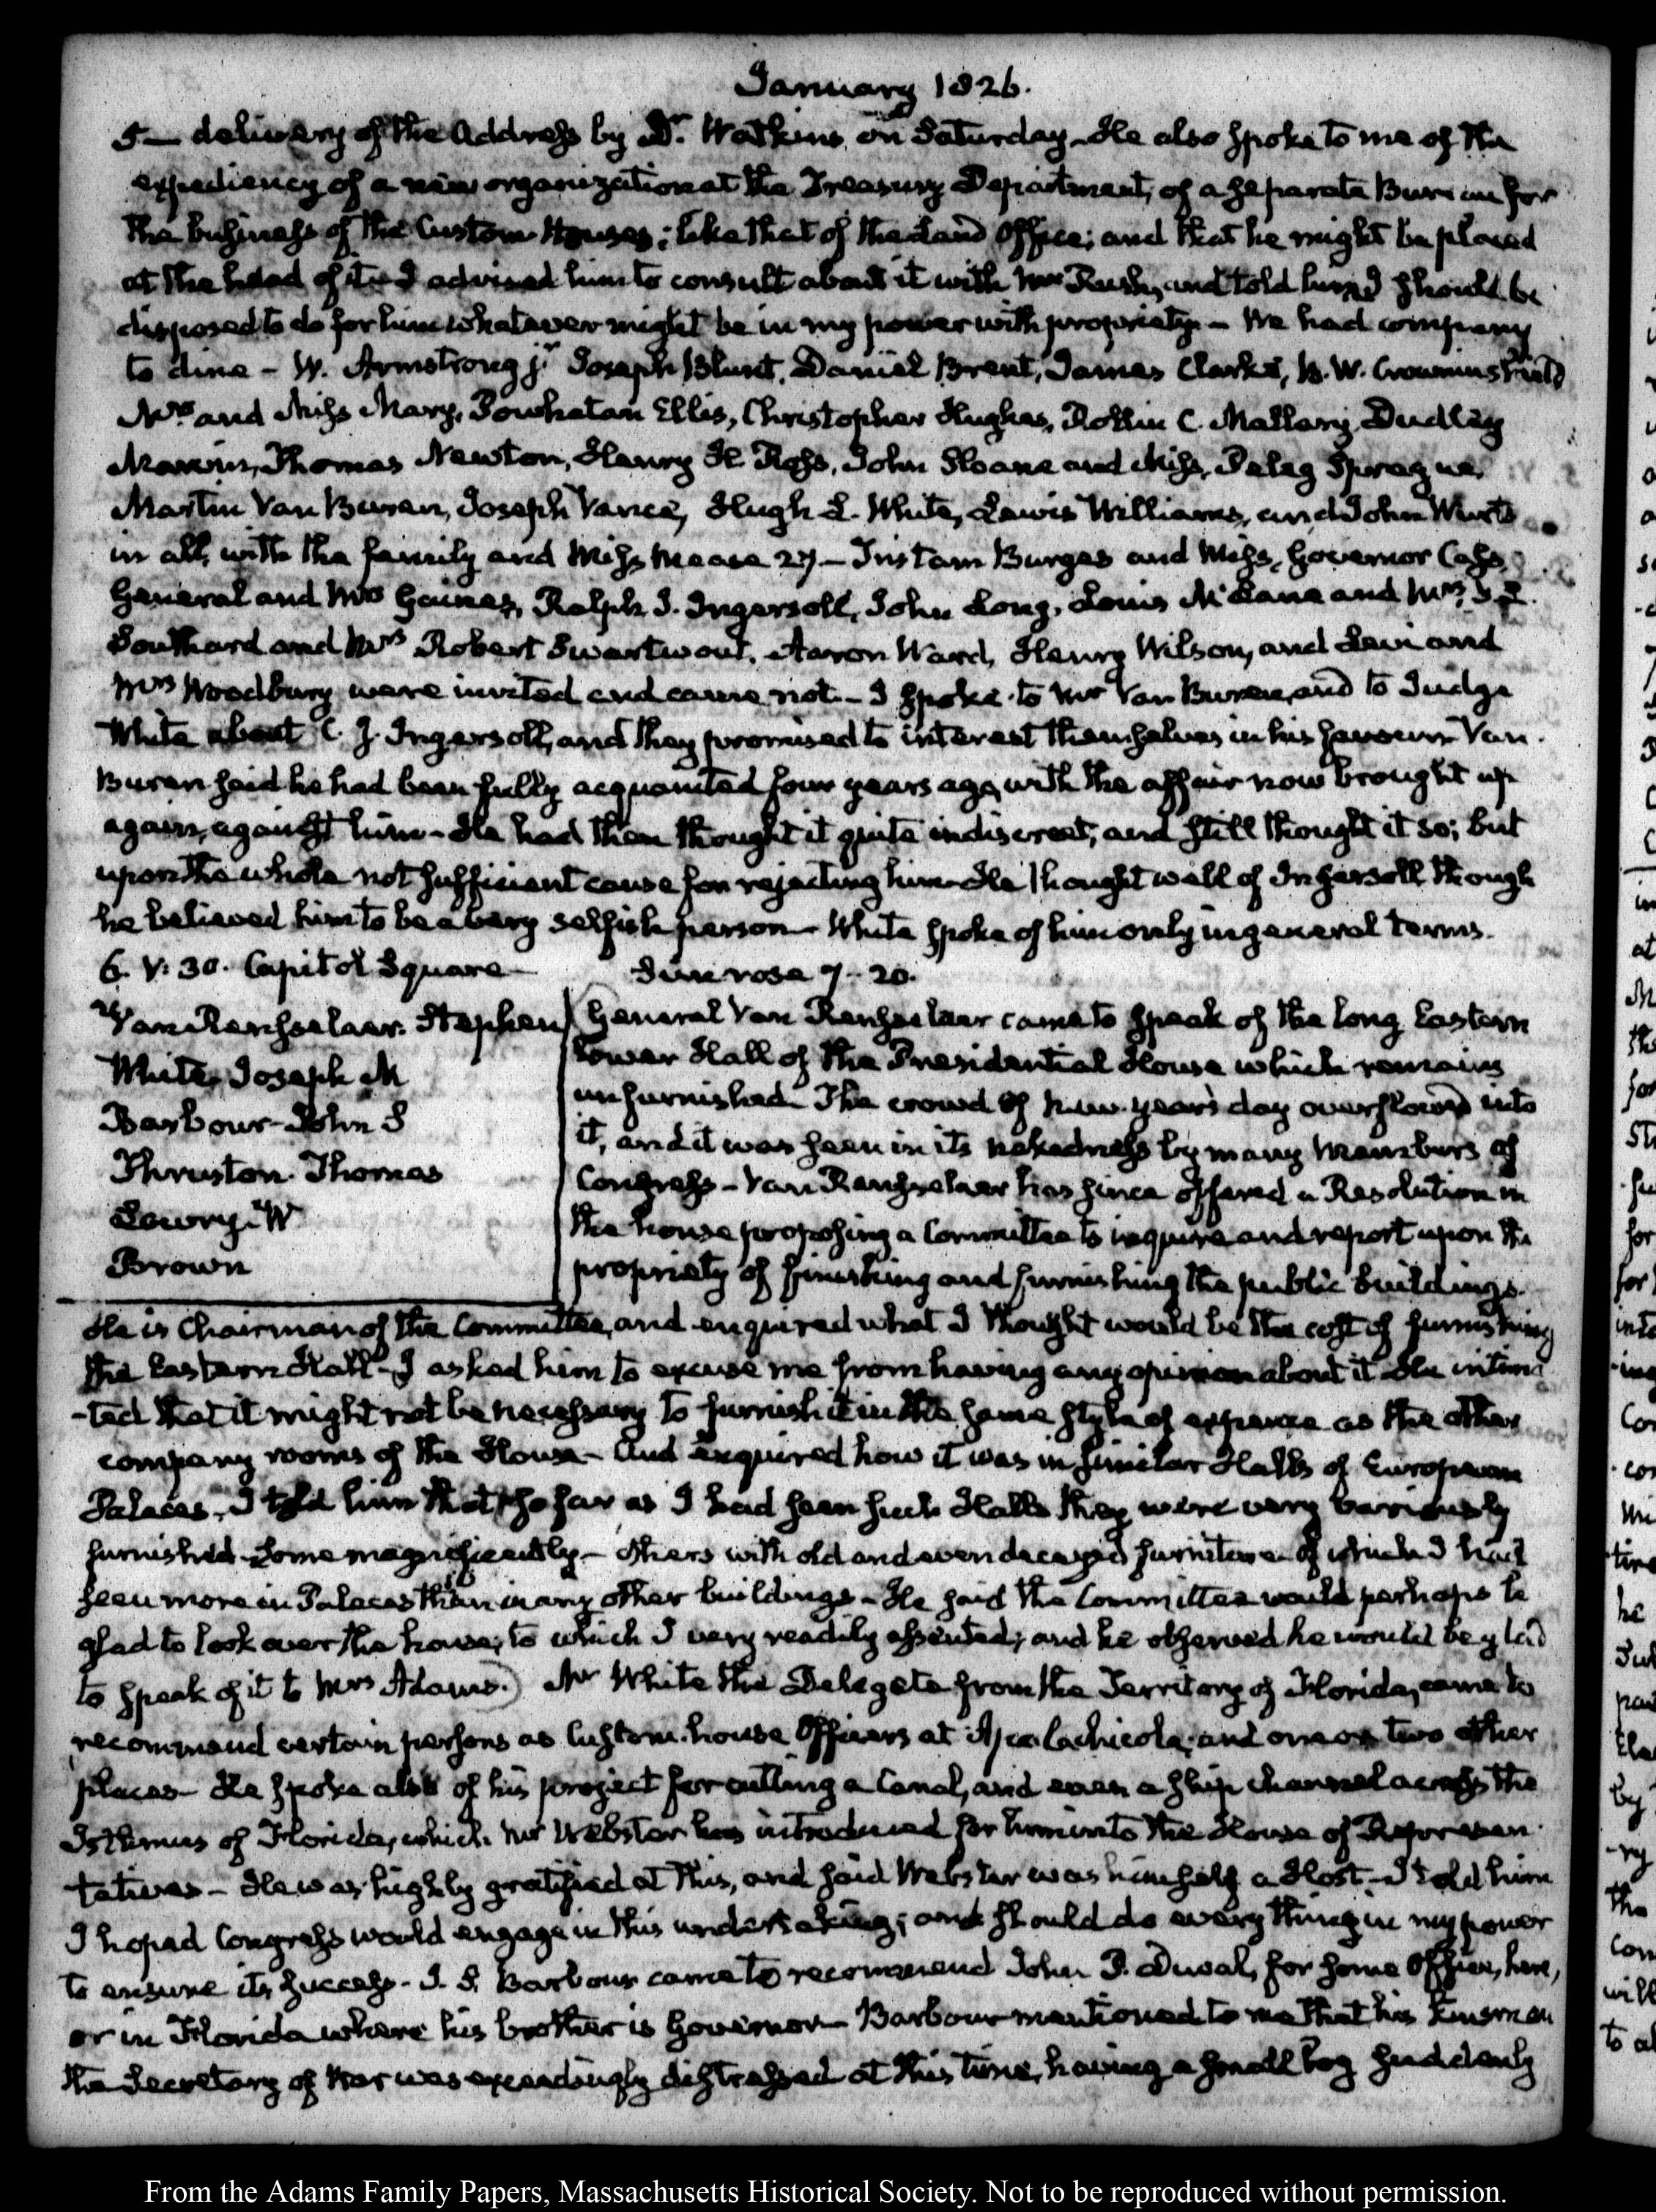 January 1826.
5— delivery of the Address by Dr. Watkins on Saturday. He also spoke to me of the
expediency of a new organization at the Treasury Department, of a separate Bureau for
the business of the Custom Houses; like that of the Land Office; and that he might be placed
at the head of it— I advised him to consult about it with Mr Rush, and told him I should be
disposed to do for him whatever might be in my power with propriety.— We had company
to dine — W. Armstrong jr. Joseph Blunt, Daniel Brent, James Clarke, B. W. Crowninshield
Mrs and Miss Mary, Powhatan Ellis, Christopher Hughes, Rollin C. Mallary, Dudley
Marvin, Thomas Newton, Henry H. Ross, John Sloane and Miss, Peleg Sprague,
Martin Van Buren, Joseph Vance, Hugh L. White, Lewis Williams, and John Wurts
in all, with the family and Miss Mease 27— Tristam Burges and Miss, Governor Cass
General and Mrs Gaines, Ralph I. Ingersoll, John Long, Louis McLane and Mrs, S. L.
Southard and Mrs Robert Swartwout, Aaron Ward, Henry Wilson, and Levi and
Mrs Woodbury were invited and came not.— I spoke to Mr Van Buren, and to Judge
White about C. J. Ingersoll, and they promised to interest themselves in his favour Van
Buren said he had been fully acquainted four years ago, with the affair now brought up
again, against him— He had then thought it quite indiscreet, and still thought it so; but
upon the whole not sufficient cause for rejecting him— He thought well of Ingersoll though
he believed him to be a very selfish person— White spoke of him only in general terms.
6. V: 30. Capitol Square— Sun rose 7-20.
Van Rensselaer. Stephen
White. Joseph M
Barbour—John S
Thruston. Thomas
Lowry. W
Brown
General Van Rensselaer came to speak of the long Eastern
lower Hall of the Presidential House which remains
unfurnished. The crowd of new-years day overflowed into
it, and it was seen in its nakedness by many members of
Congress— Van Rensselaer has since offered a Resolution in
the house proposing a Committee to inquire and report upon the
propriety of finishing and furnishing the public buildings.
He is Chairman of the Committee, and enquired what I thought would be the cost of furnishing
the Eastern Hall— I asked him to excuse me from having any opinion about it. He intima
-ted that it might not be necessary to furnish it in the same style of expence as the other
company rooms of the House— And enquired how it was in similar Halls of European
Palaces. I told him that so far as I had seen such Halls they were very variously
furnished. Some magnificently— others with old and even decayed furniture of which I had
seen more in Palaces than in any other buildings— He said the Committee would perhaps be
glad to look over the house; to which I very readily assented; and he observed he would be glad
to speak of it to Mrs Adams.) Mr White the Delegate from the Territory of Florida, came to
recommend certain persons as Custom-house Officers at Apalachicola; and one or two other
places— He spoke also of his project for cutting a Canal, and even a ship channel across the
Isthmus of Florida, which Mr Webster has introduced for him into the House of Represen
tatives— He was highly gratified at this, and said Webster was himself a Host— I told him
I hoped Congress would engage in this undertaking; and should do every thing in my power
to ensure its success— J. S. Barbour came to recommend John P. Duval, for some Office, here,
or in Florida where his brother is Governor— Barbour mentioned to me that his kinsman
the Secretary of War was exceedingly distressed at this time, having a small boy suddenly
From the Adams Family Papers, Massachusetts Historical Society. Not to be reproduced without permission.